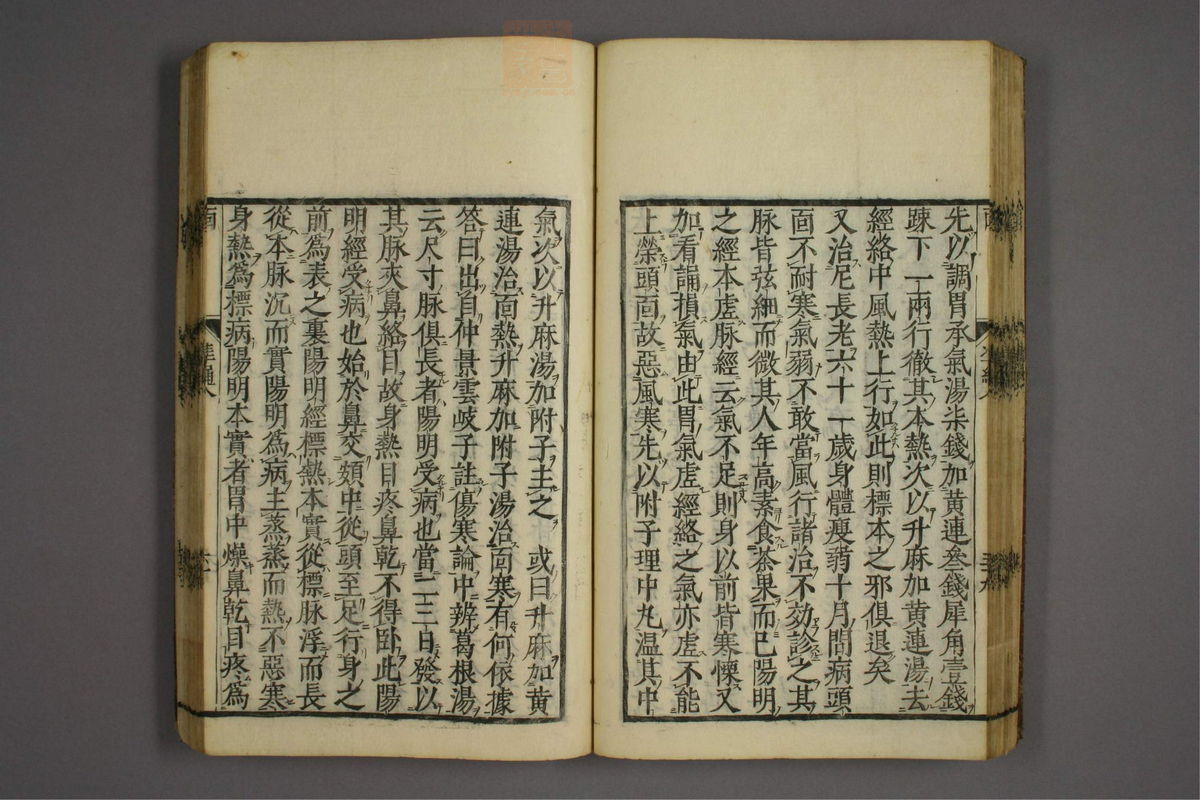 先以調胃承氣湯柒錢加黃連叄錢犀角壹錢
踈下一二兩行徹其本熱次以升麻加黃連湯去
經絡中風熱上行如此則標本之邪俱退矣
又治尼長老六十一歲身體瘦弱十月間病頭
面不耐寒氣弱不敢當風行諸治不効診之其
脉皆弦細而微其人年高素食茶果而已陽明
之經本虛脉經云氣不足則身以前皆寒慄又
加看誦損氣由此胃氣虛經絡之氣亦虛不能
上榮頭面故惡風寒先以附子理中丸温其中
氣次以升麻湯加附子主之 或曰升麻加黃
連湯治面熱升麻加附子湯治面寒有何依據
答曰出自仲景雲岐子註傷寒論中辨葛根湯
云尺寸脉俱長者陽明受病也當二三日發以
其脉夾鼻絡目故身熱目疼鼻乾不得卧此陽
明經受病也始於鼻交頞中從頭至足行身之
前爲表之裏陽明經標熱本實從標脉浮而長
從本脉沉而實陽明爲病主蒸蒸而熱不惡寒
身熱爲標病陽明本實者胃中燥鼻乾目疼爲